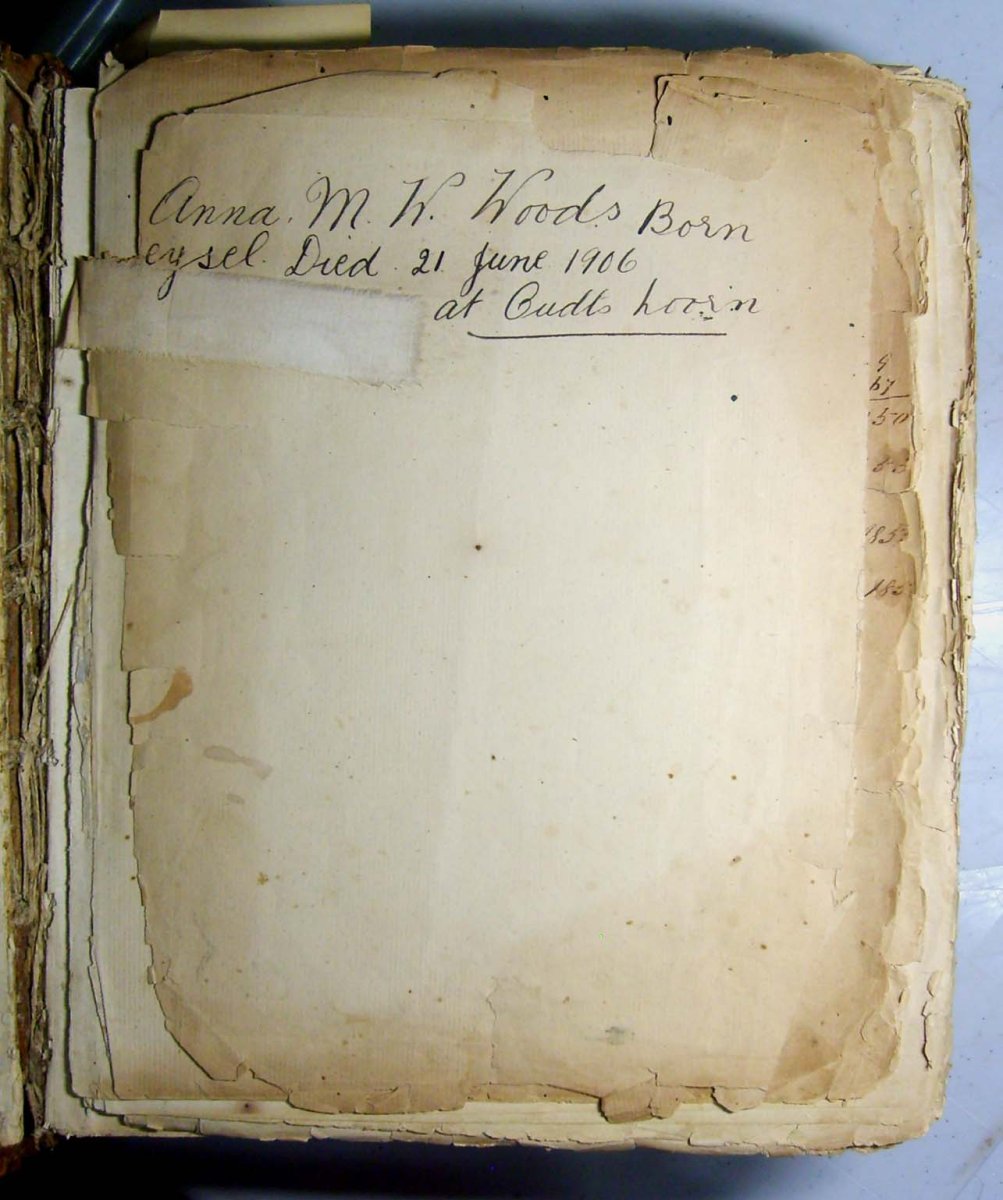 Anna. M. W. Woods Born
eysel. Died. 21 June 1906
at Oudts hoorn
9
67
50
53
185
185